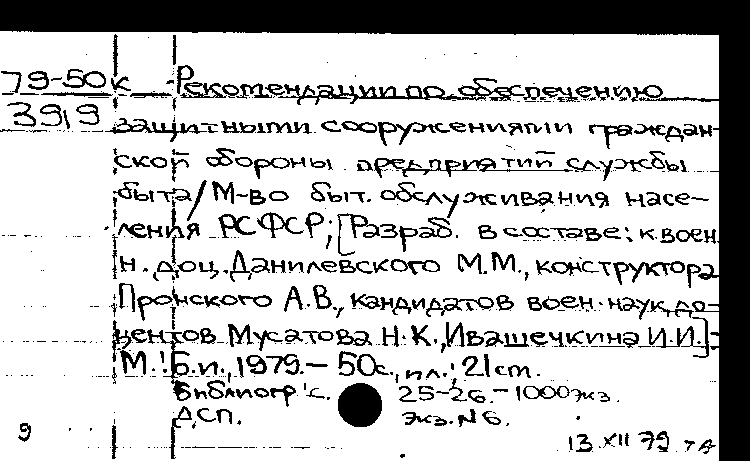 79-50к Рекомендации по обеспечению
3919 защитными сооружениями граждан-
ской обороны предприятий службы
быта/М-во быт. обслуживания насе-
ления РСФСР; [Разраб. в составе: к.воен.
н. доц. Данилевского М.М., конструктора
Пронского А.В., кандидатов воен. наук, до-
центов Мусатова Н.К., Ивашечкина И.И.]-
М.: Б.и., 1979.- 50с., ил.; 21 см.
Библиогр.: с. 25-26.- 1000 экз.
ДСП. Экз. № 6.
9
13 XII 79